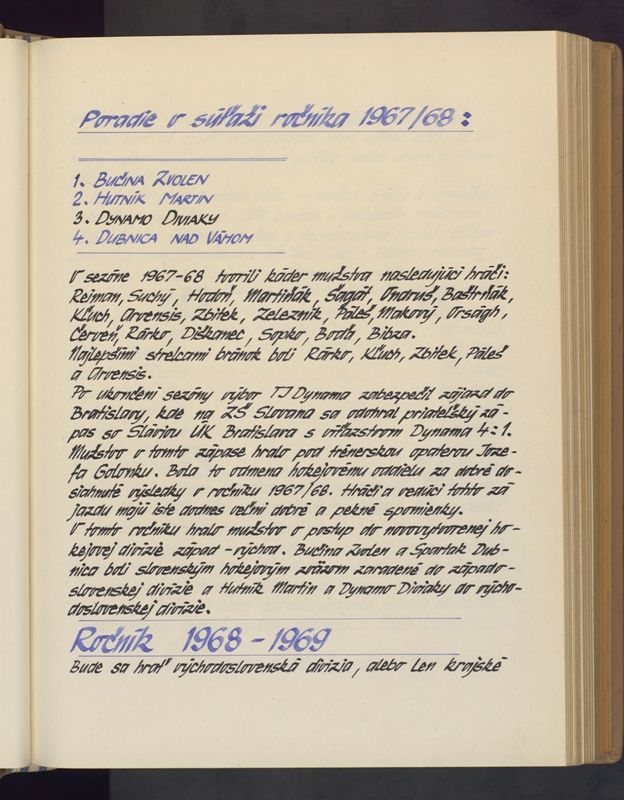 Poradie v súťaži ročníka 1967/68:
1. Bučina Zvolen
2. Hutník Martin
3. Dynamo Diviaky
4. Dubnica nad Váhom
V sezóne 1967-68 tvorili káder mužstva nasledujúci hráči:
Rejman, Suchý, Hodoň, Martiňák, Šagát, Ondruš, Baštrňák,
Kľuch, Orvensis, Zbitek, Železník, Páleš, Makový, Orságh,
Červeň, Rárko, Diškanec, Sopko, Boďa, Bibza.
Najlepšími strelcami bránok boli Rárko, Kľuch, Zbitek, Páleš
a Orvensis.
Po ukončení sezóny výbor TJ Dynama zabezpečil zájazd do
Bratislavy, kde na ZŠ Slovana sa odohral priateľský zá-
pas so Sláviou UK Bratislava s víťazstvom Dynama 4:1.
Mužstvo v tomto zápase hralo pod trénerskou opaterou Joze-
fa Golonku. Bola to odmena hokejovému oddielu za dobré do-
siahnuté výsledky v ročníku 1967/68. Hráči a vedúci tohto zá
jazdu majú iste dodnes veľmi dobré a pekné spomienky.
V tomto ročníku hralo mužstvo o postup do novovytvorenej ho-
kejovej divízie západ-východ. Bučina Zvolen a Spartak Dub-
nica boli slovenským hokejovým zväzom zaradené do západo-
slovenskej divízie a Hutník Martin a Dynamo Diviaky do výcho-
doslovenskej divízie.
Ročník 1968-1969
Bude sa hrať východoslovenská divízia, alebo len krajské